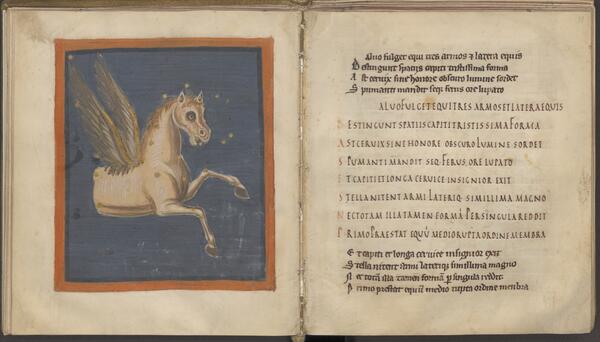 Quo fulget equi tres armos & latera equis
Destingunt spatiis capiti tristissima forma
Ast cervix sine honore obscuro lumine sordet
Spumanti mandit seq; ferus ore lupato
ALVO FULGET EQUI TRES ARMOS ET LATERA EQUIS
DESTINGUNT SPATIIS CAPITI TRISTISSIMA FORMA
AST CERUIX SINE HONORE OBSCURO LUMINE SORDET
SPUMANTI MANDIT SEQ. FERUS ORE LUPATO
ET CAPITI ET LONGA CERUICE INSIGNIOR EXIT
STELLA NITENT ARMI LATERIQ. SIMILLIMA MAGNO
NEC TOTAM ILLA TAMEN FORMÃ PER SINGULA REDDIT
PRIMO PRAESTAT EQUŨ MEDIO RUPTA ORDINE MEMBRA
Et capiti et longa cervice insignior exit
Stella nitent armi lateriq; simillima magno
N ec totã illa tamen formam p singula reddit
Primo prestat equũ medio rupta ordine membra